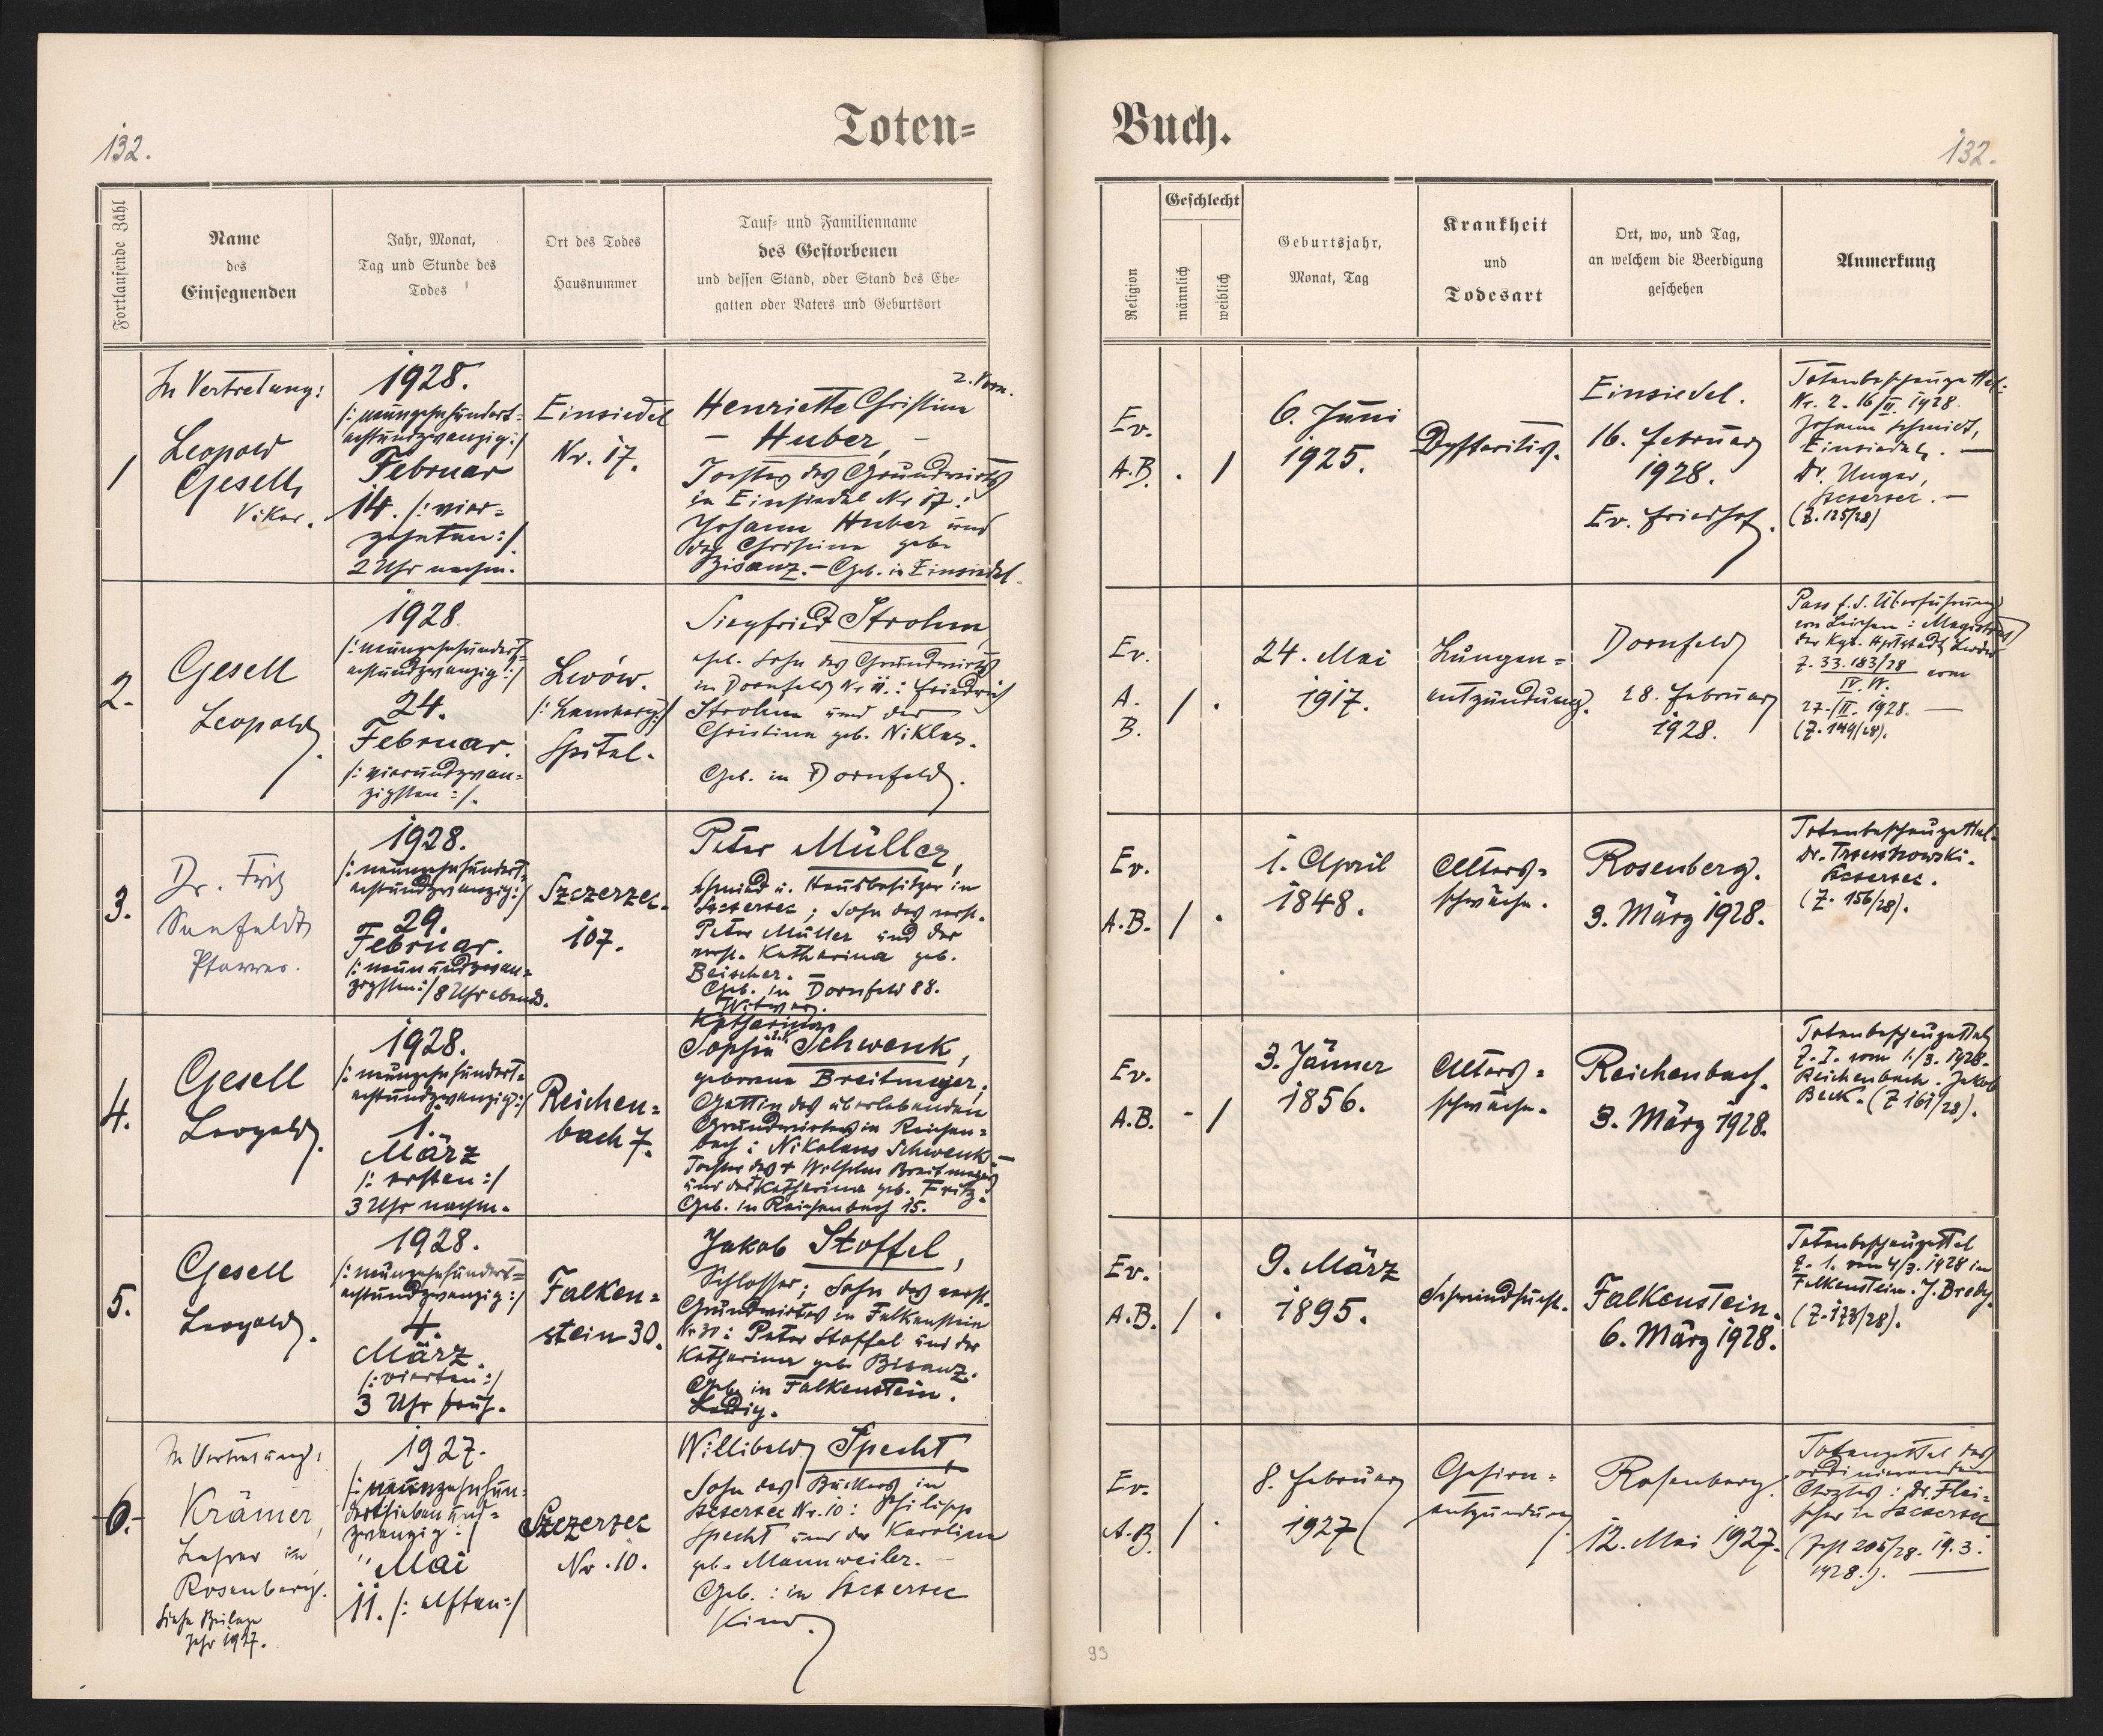 132.
Toten=
Buch.
132.
Fortlaufende Zahl
Name
des
Einsegnenden
Jahr, Monat,
Tag und Stunde des
Todes
Ort des Todes
Hausnummer
Tauf= und Familienname
des Gestorbenen
und dessen Stand, oder Stand des Ehe=
gatten oder Vaters und Geburtsort
Religion
Geschlecht
männlich
weiblich
Geburtsjahr,
Monat, Tag
Krankheit
und
Todesart
Ort, wo, und Tag,
an welchem die Beerdigung
geschehen
Anmerkung
1
In Vertretung:
Leopold
Gesell,
Vikar.
1928.
/: neunzehnhundert=
achtundzwanzig:/
Februar
14. /: vier=
zehnten:/
2 Uhr nachm.
Einsiedel
Nr. 17.
2. Vorn.
Henriette Christine
– Huber, –
Tochter des Grundwirts
in Einsiedel Nr 17:
Johann Huber und
der Christina geb.
Bisanz. – Geb. in Einsiedel.
Ev.
A.B.
. /
6. Juni
1925.
Dyfteritis.
Einsiedel.
16. Februar
1928.
Ev. Friedhof.
Totenbeschauzettel:
Nr. 2. 16/II. 1928.
Johann Schmidt,
Einsiedel. —
Dr. Unger,
Szczerzec. —
(Z. 125/28)
2.
Gesell
Leopold.
1928
/: neunzehnhundert=
achtundzwanzig:/
24.
Februar.
/: vierundzwan=
zigsten:/.
Lwów.
/: Lemberg:/
Spital.
Siegfried Strohm,
ehel. Sohn des Grundwirts
in Dornfeld Nr 11.: Friedrich
Strohm und der
Christina geb. Niklas.
Geb. in Dornfeld.
Ev.
A.
B.
/ .
24. Mai
1917.
Lungen=
entzündung.
Dornfeld
28. Februar
1928.
Pass f. d. Überführung
von Leichen: Magistrat
der Kgl. Hptstadt Lwów
Z. 33.183/28 vom
IV. W.
27./II. 1928. —
(Z. 149/28).
3.
Dr. Fritz
Seefeldt
Pfarrer.
1928.
/: neunzehnhundert=
achtundzwanzig:/
29.
Februar.
/: neunundzwan=
zigsten:/ 8 Uhr abends.
Szczerzec.
107.
Peter Müller,
Schmied u. Hausbesitzer in
Szczerzec; Sohn des verst.
Peter Müller und der
verst. Katharina geb.
Beischer.
Geb. in Dornfeld 88.
Witwer.
Ev.
A.B.
/ .
1. April
1848.
Alters=
schwäche.
Rosenberg.
3. März 1928.
Totenbeschauzettel.
Dr.
Szczerzec.
(Z. 156/28).
4.
Gesell
Leopold.
1928.
/: neunzehnhundert=
achtundzwanzig:/
1.
März
/: ersten:/
3 Uhr nachm.
Reichen=
bach 7.
Katharina
Sophia Schwenk,
geborene Breitmayer;
Gattin des überlebenden
Grundwirtes in Reichen=
bach: Nikolaus Schwenk. –
Tochter des † Wilhelm Breitmayer
und der † Katharina geb. Fritz.
Geb. in Reichenbach 15.
Ev.
A.B.
- /
3. Jänner
1856.
Alters=
schwäche.
Reichenbach.
3. März 1928.
Totenbeschauzettel
Z. 2. vom 1./3. 1928.
Reichenbach. Jakob
Beck. (Z 161/28).
5.
Gesell
Leopold.
1928.
/: neunzehnhundert=
achtundzwanzig:/
4.
März.
/: vierten:/
3 Uhr früh.
Falken=
stein 30.
Jakob Stoffel,
Schlosser; Sohn des verst.
Grundwirtes in Falkenstein
Nr 30: Peter Stoffel und der
Katharina geb. Bisanz.
Geb. in Falkenstein.
Ledig.
Ev.
A.B.
/ .
9. März
1895.
Schwindsucht.
Falkenstein.
6. März 1928.
Totenbeschauzettel
Z. 1. vom 4/3. 1928 in
Falkenstein. J. Bredy.
(Z. 173/28).
6.
In Vertretung:
Krämer,
Lehrer in
Rosenberg.
Siehe Beilage
Jahr 1927.
1927.
/: neunzehnhun=
dertsieben und=
zwanzig:/
Mai
11. /: elften:/
Szczerzec
Nr. 10.
Willibald Specht,
Sohn des Bäckers in
Szczerzec Nr. 10: Philipp
Specht und der Karoline
geb. Mannweiler. –
Geb.: in Szczerzec
Kind.
Ev.
A.B.
/ .
8. Februar
1927
Gehirn=
entzündung
Rosenberg.
12. Mai 1927.
Totenzettel des
ordinierenden
Arztes: Dr. Flei=
scher in Szczerzec
205/28. 19.3.
1928.). —
93